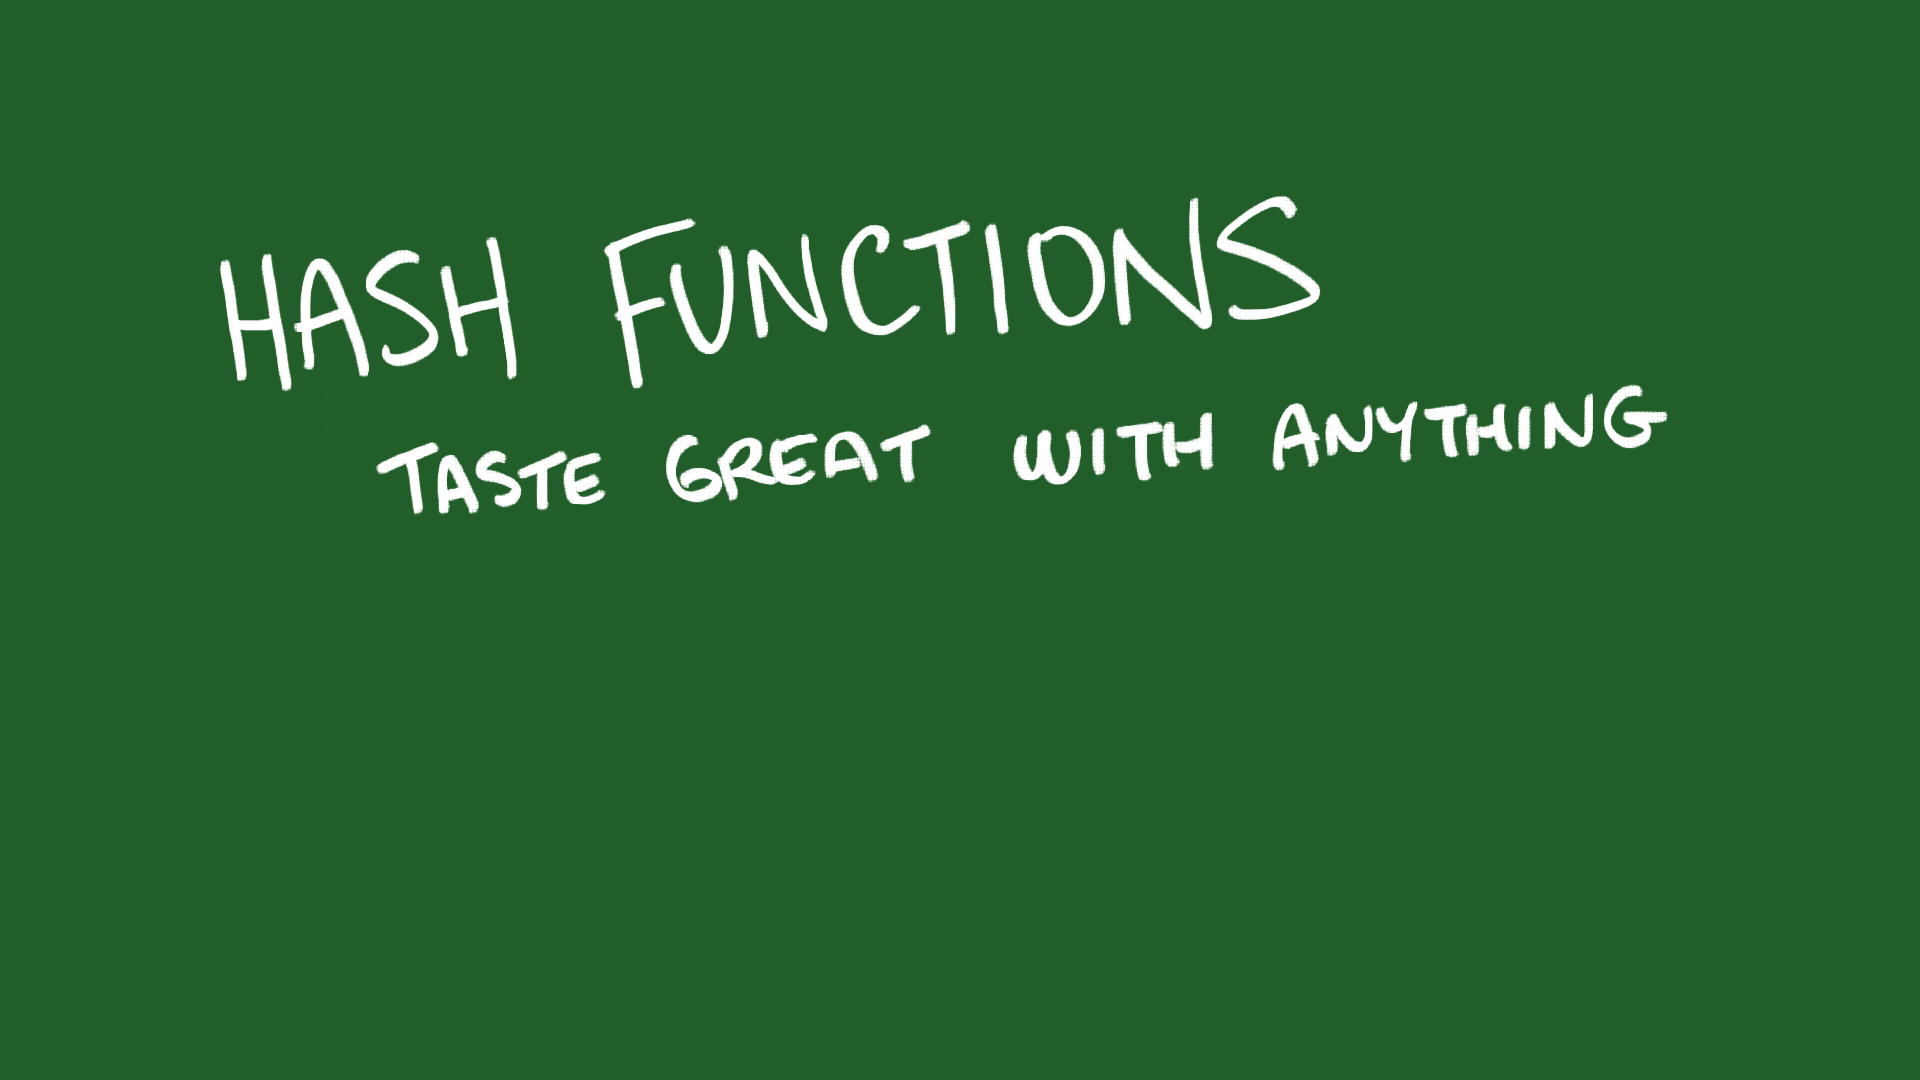 HASH FUNCTIONS
TASTE GREAT WITH ANYTHING